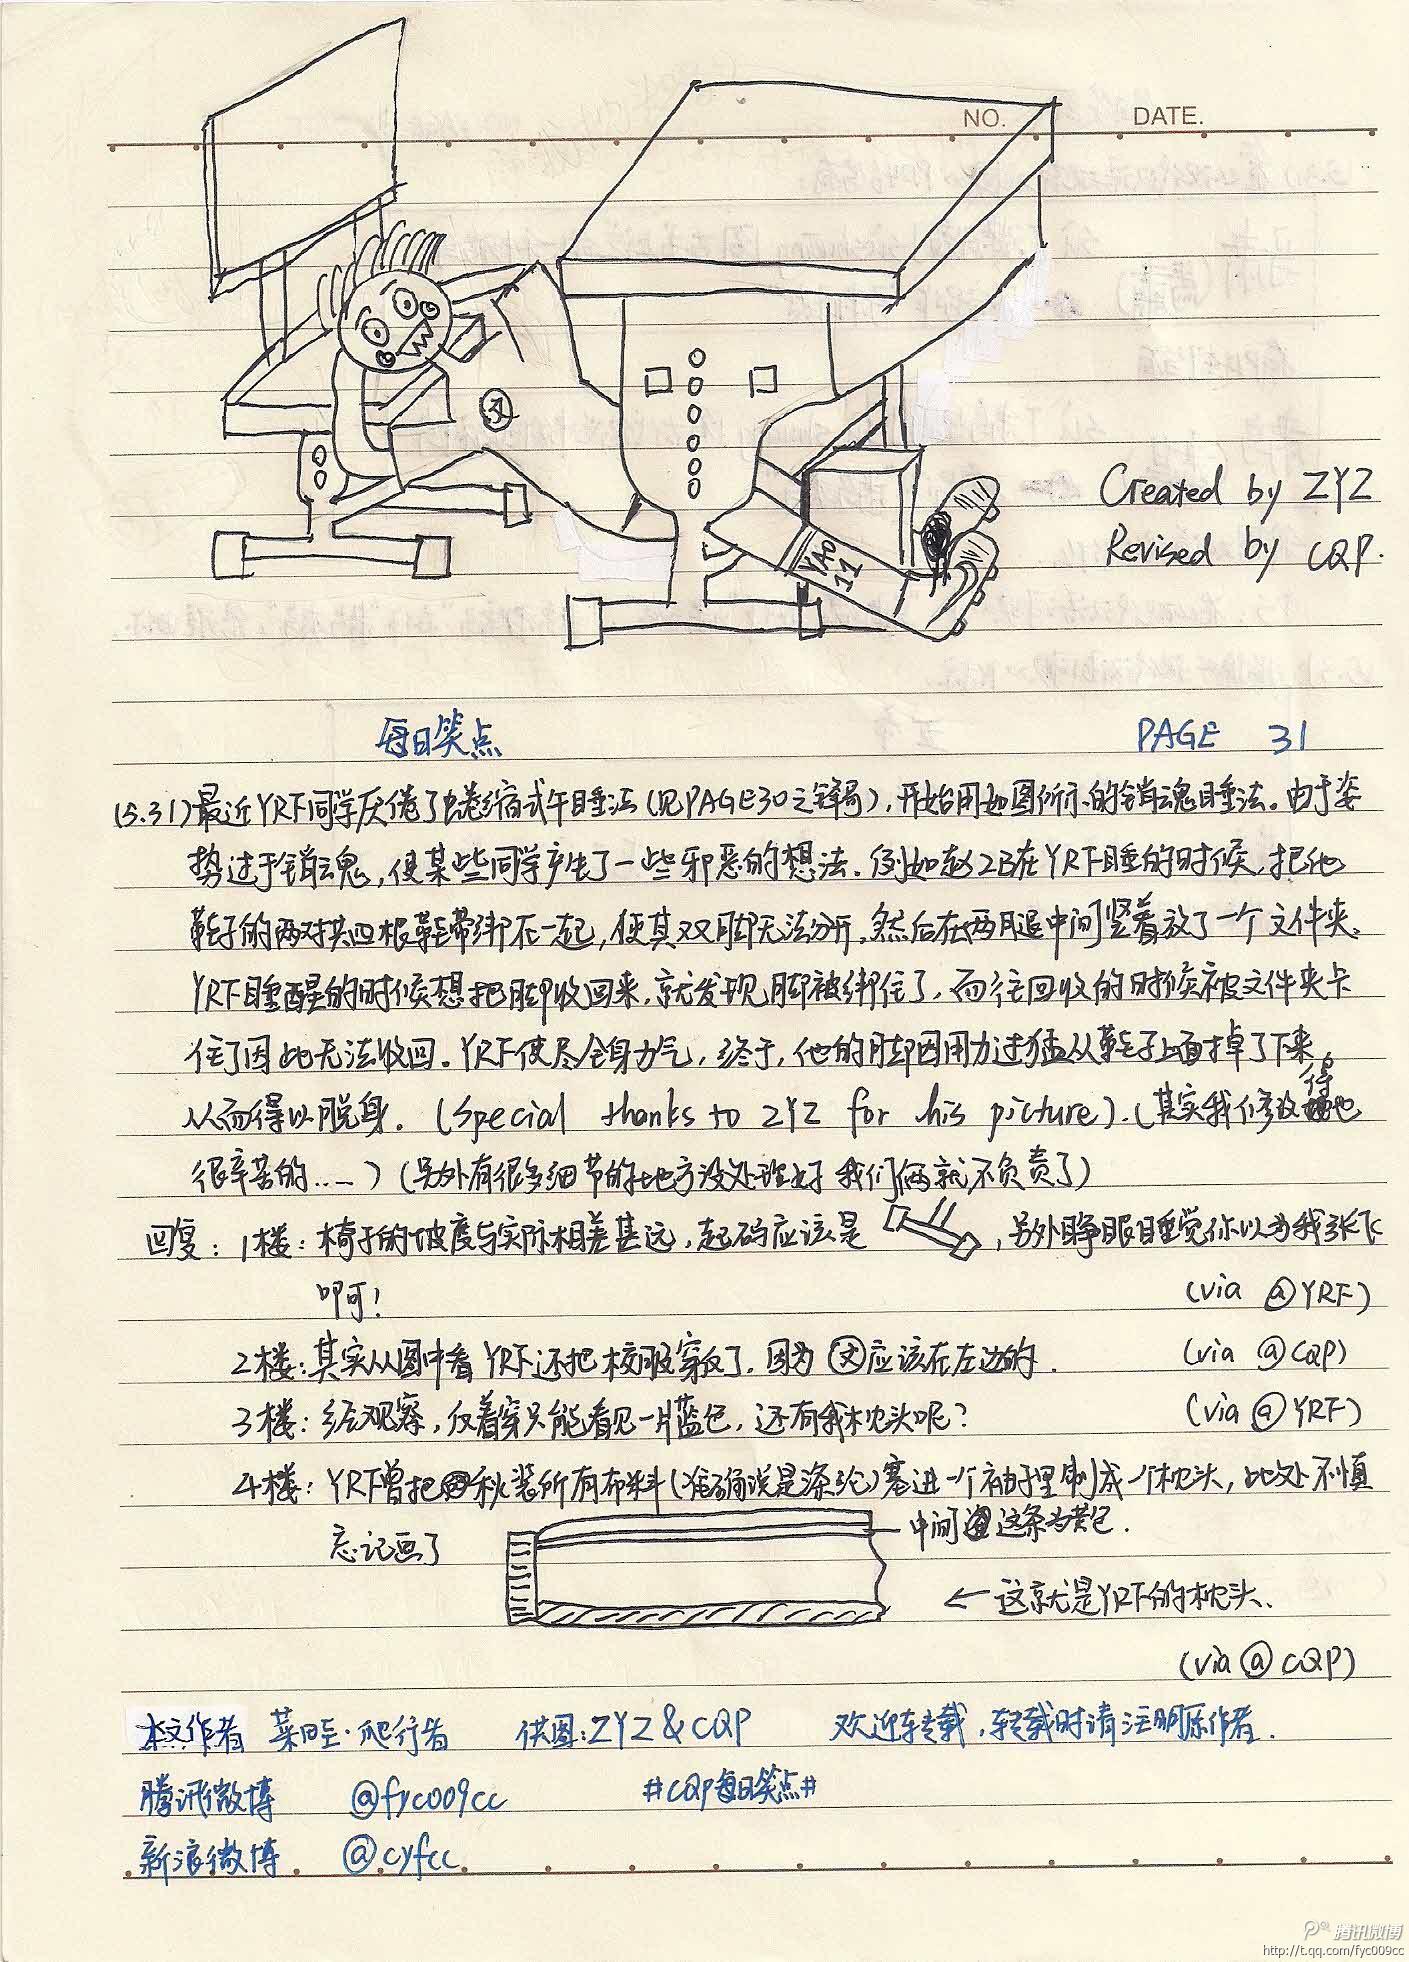 NO. DATE.
文
YAO
11
Created by ZYZ
Revised by CQP.
每日笑点 PAGE 31
(5.31)最近YRF同学厌倦了蜷缩式午睡法(见PAGE30之锋哥),开始用如图所示的销魂睡法。由于姿
势过于销魂,使某些同学产生了一些邪恶的想法.例如赵2B在YRF睡的时候,把他
鞋子的两对共四根鞋带绑在一起,使其双脚无法分开,然后在两腿中间竖着放了一个文件夹.
YRF睡醒的时候想把脚收回来,就发现脚被绑住了,而往回收的时候被文件夹卡
住了因此无法收回.YRF使尽全身力气,终于,他的脚因用力过猛从鞋子上面掉了下来,
从而得以脱身.(Special thanks to ZYZ for his picture).(其实我修改得也
很辛苦的……)(另外有很多细节的地方没处理好 我们俩就不负责了)
回复:1楼:椅子的坡度与实际相差甚远,起码应该是 ,另外睁眼睡觉你以为我张飞
啊!(via @YRF)
2楼:其实从图中看YRF还把校服穿反了.因为文应该在左边的.(via @CQP)
3楼:经观察,仅着穿只能看见一片蓝色,还有我枕头呢?(via @YRF)
4楼:YRF曾把秋装所有布料(准确说是涤纶)塞进一个袖子里制成一个枕头,此处不慎
忘记画了
中间这条为黄色.
←这就是YRF的枕头.
(via @CQP)
本文作者 菜田·爬行者 供图:ZYZ&CQP 欢迎转载,转载时请注明原作者.
腾讯微博 @fyc009cc #CQP每日笑点#
新浪微博 @cyfcc
腾讯微博
http://t.qq.com/fyc009cc